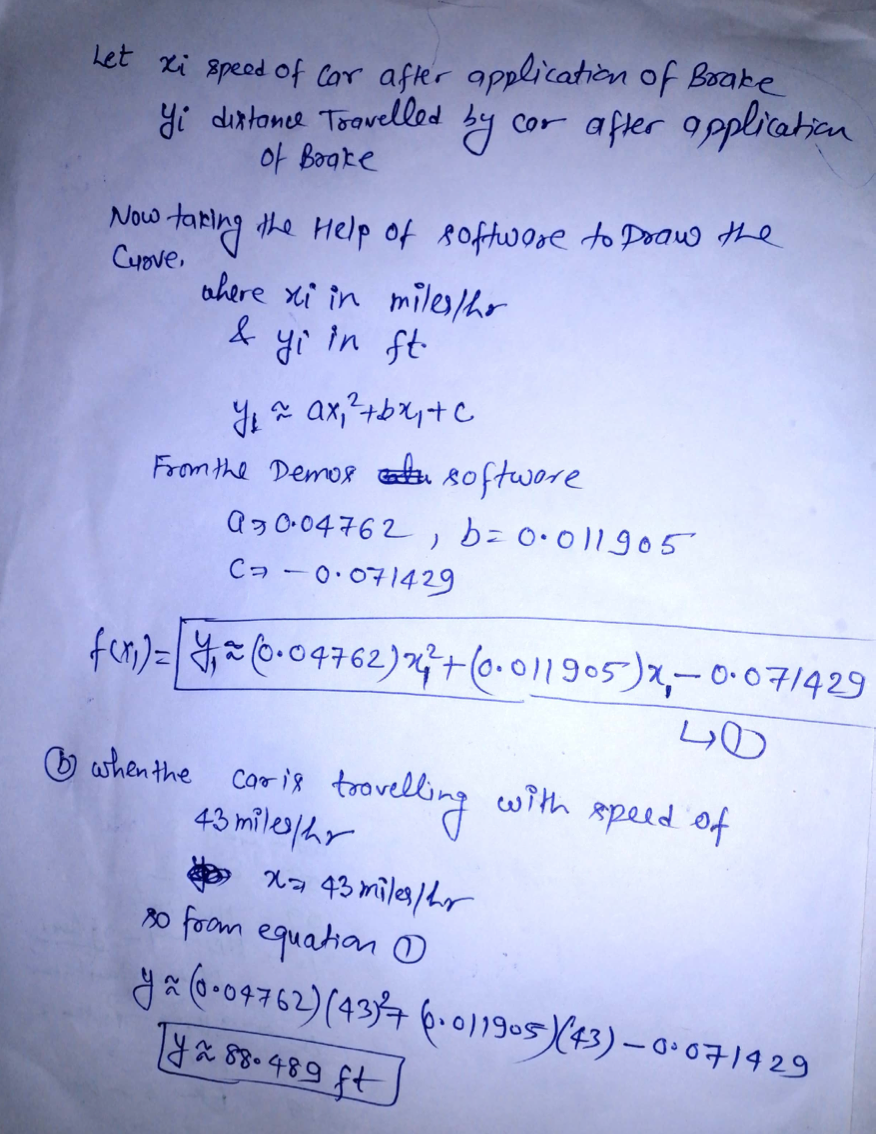 Let xi speed of Car after application of Brake
yi distance Travelled by car after application
of Brake
Now taking the Help of software to Draw the
Curve.
where xi in miles/hr
& yi in ft.
y₁ ≈ ax₁²+bx₁+c
From the Demos software
a⇒0.04762, b=0.011905
C⇒ -0.071429
f(x₁)= y₁≈(0.04762)x₁²+(0.011905)x₁-0.071429
↳①
ⓑ when the car is travelling with speed of
43 miles/hr
x⇒ 43 miles/hr
so from equation ①
y≈(0.04762)(43)²+(0.011905)(43)-0.071429
y≈88.489 ft